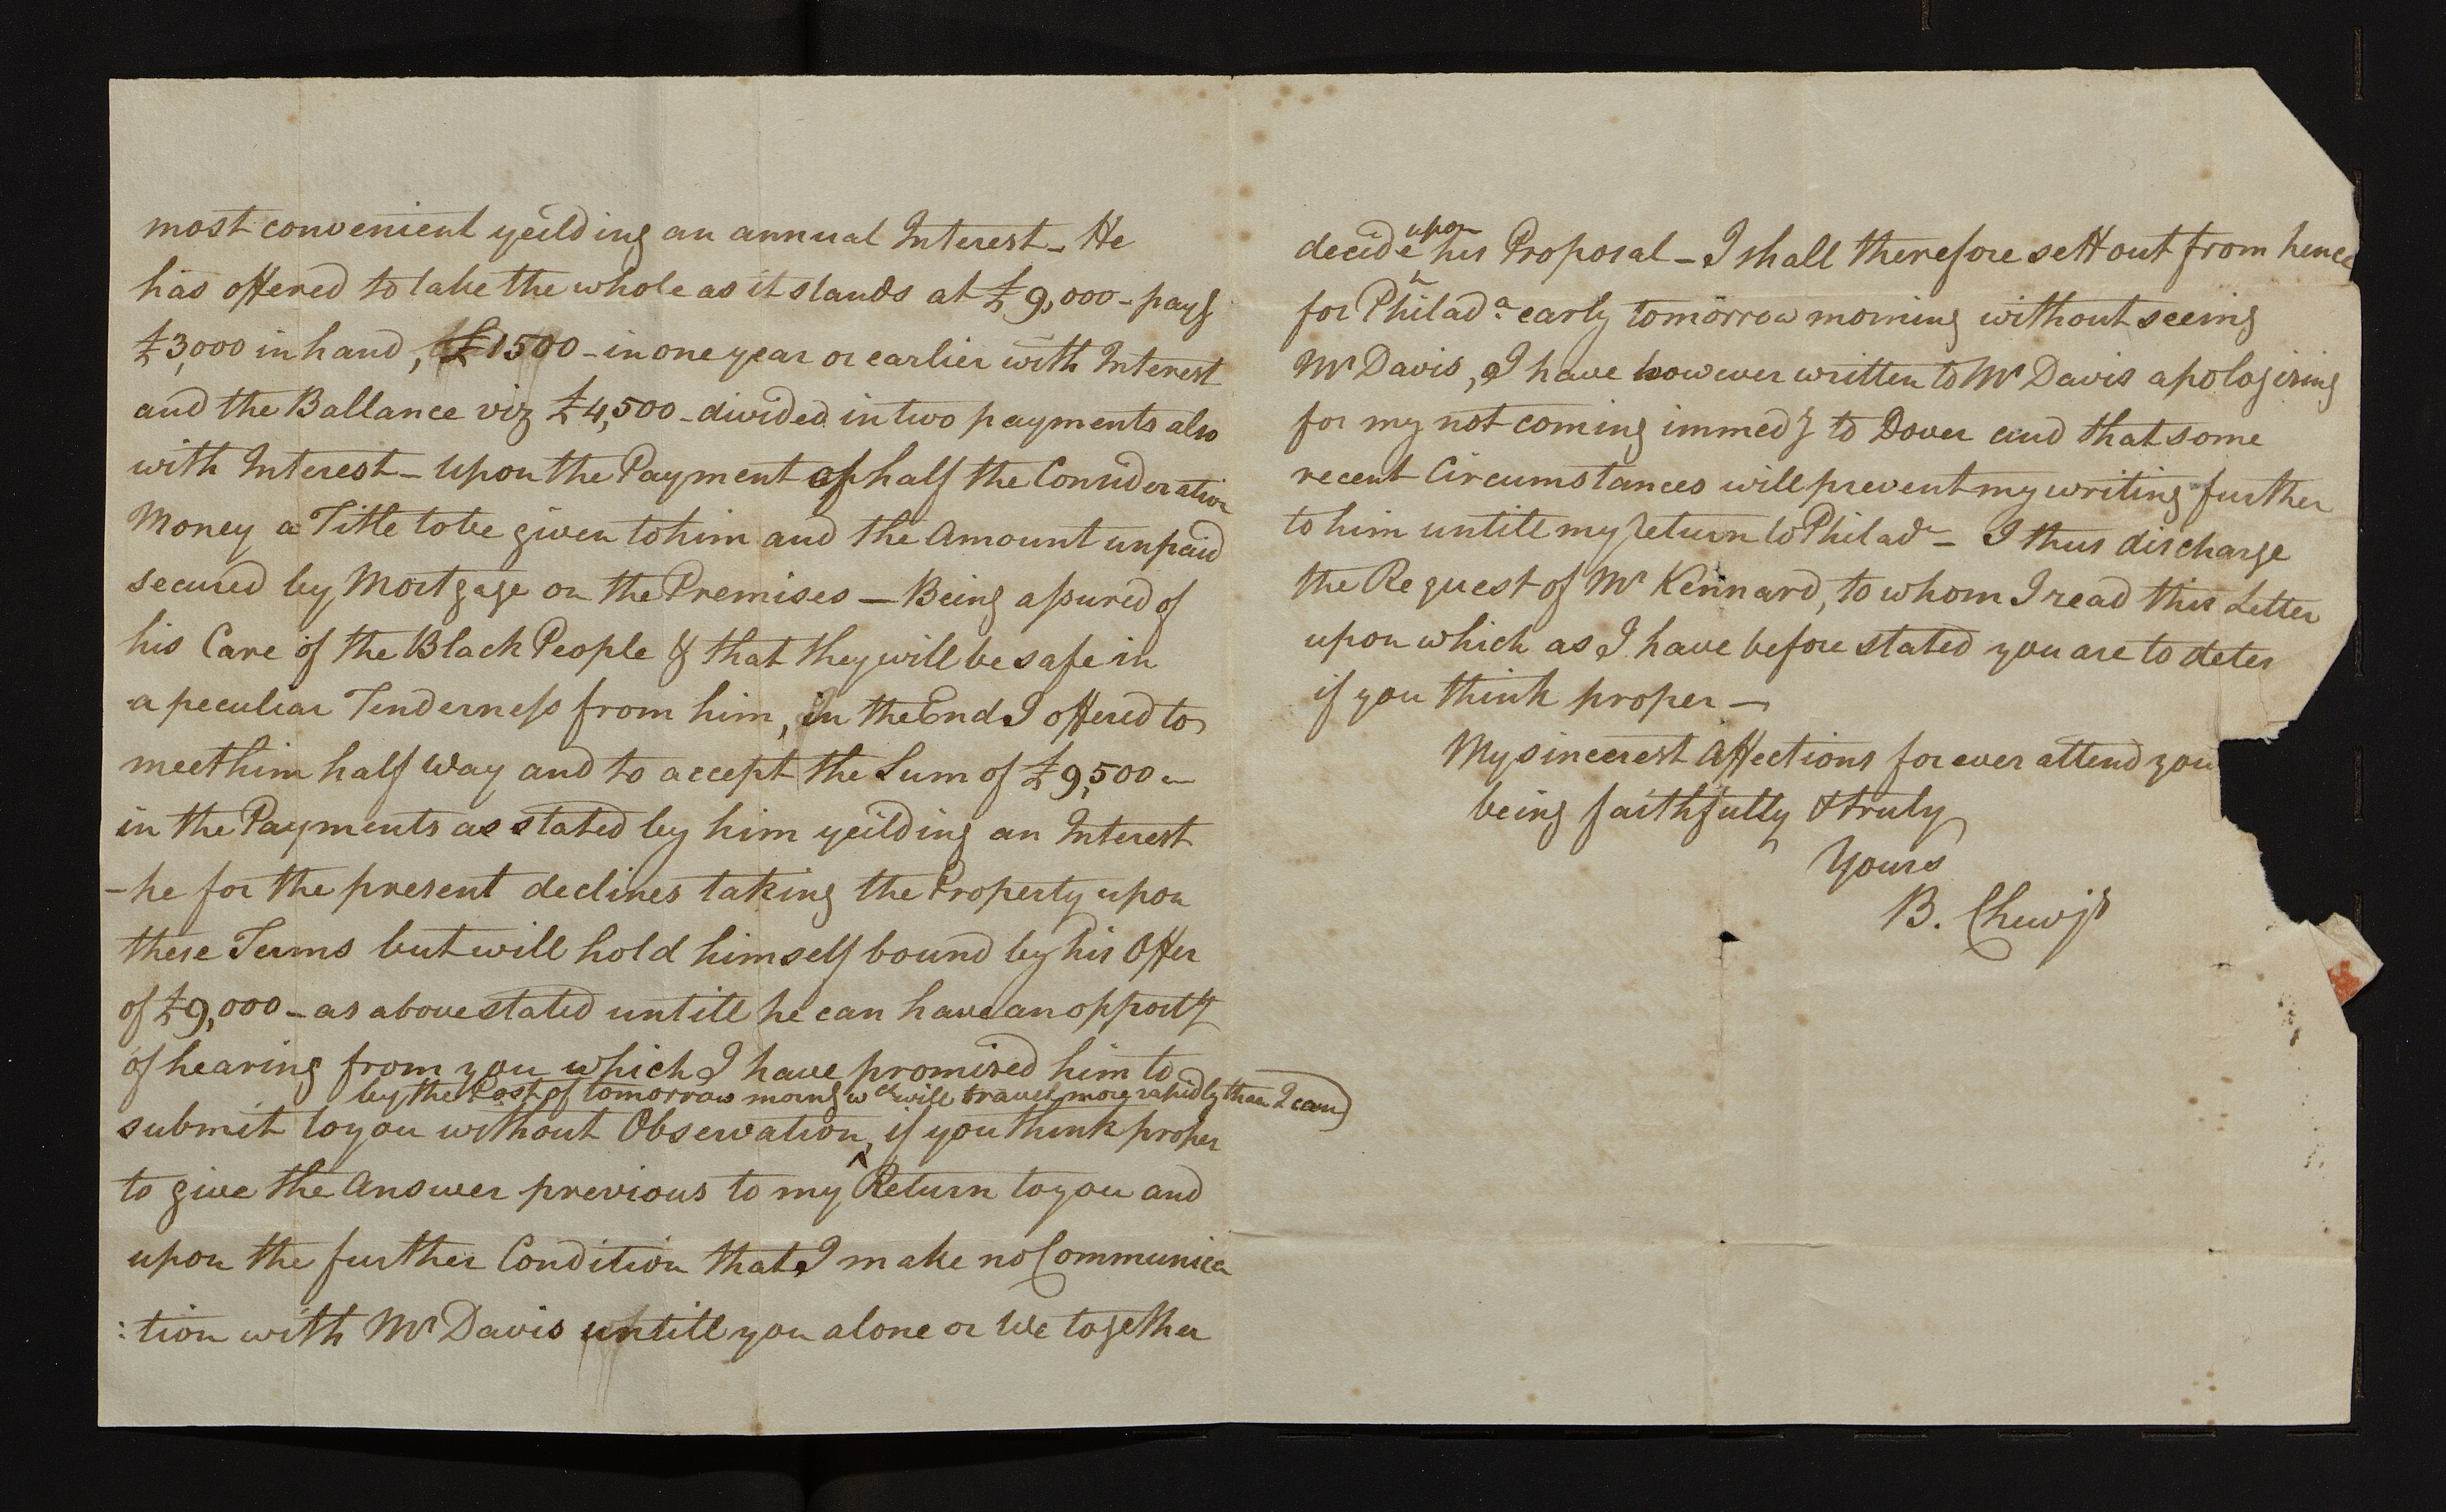 most convenient yeilding an annual Interest - He
has offered to take the whole as it stands at £9,000 - payg
£3,000 in hand, £1500 - in one year or earlier with Interest
and the Ballance viz £4,500 - divided in two payments also
with Interest - Upon the Payment of half the Consideration
Money a Title to be given to him and the Amount unpaid
secured by Mortgage on the Premises — Being assured of
his Care of the Black People & that they will be safe in
a peculiar Tenderness from him, in the End I offered to
meet him half way and to accept the Sum of £9,500 -
in the Payments as stated by him yeilding an Interest
- he for the present declines taking the Property upon
these Terms but will hold himself bound by his Offer
of £9,000 - as above stated untill he can have an opporty
of hearing from you which I have promised him to
by the Post of tomorrow morng wch will travel more rapidly than I can)
submit to you without Observation, ^ if you think proper
to give the Answer previous to my Return to you and
upon the further Condition that I make no Communica
:tion with Mr Davis untill you alone or We together
upon
decide ^ his Proposal - I shall therefore sett out from hence
for Philada. early tomorrow morning without seeing
Mr Davis, I have however written to Mr Davis apologising
for my not coming immedy to Dover and that some
recent Circumstances will prevent my writing further
to him untill my return to Philada - I thus discharge
the Request of Mr Kennard, to whom I read this Letter
upon which as I have before stated you are to deter
if you think proper —
My sincerest Affections for ever attend you
being faithfully & truly
Yours
B. Chew jr